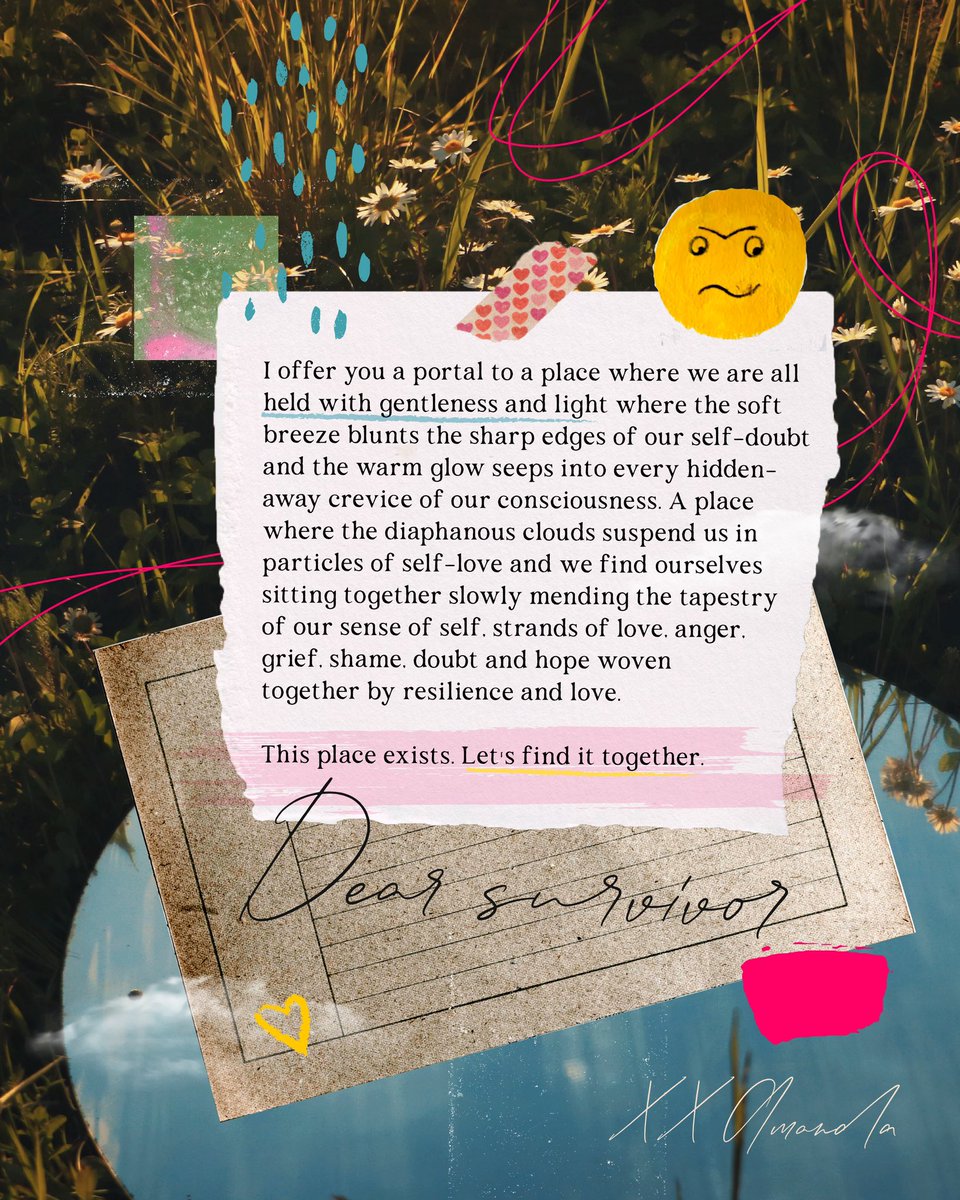 I offer you a portal to a place where we are all
held with gentleness and light where the soft
breeze blunts the sharp edges of our self-doubt
and the warm glow seeps into every hidden-
away crevice of our consciousness. A place
where the diaphanous clouds suspend us in
particles of self-love and we find ourselves
sitting together slowly mending the tapestry
of our sense of self, strands of love, anger,
grief, shame, doubt and hope woven
together by resilience and love.
This place exists. Let's find it together.
Dear survivor
XX Amanda